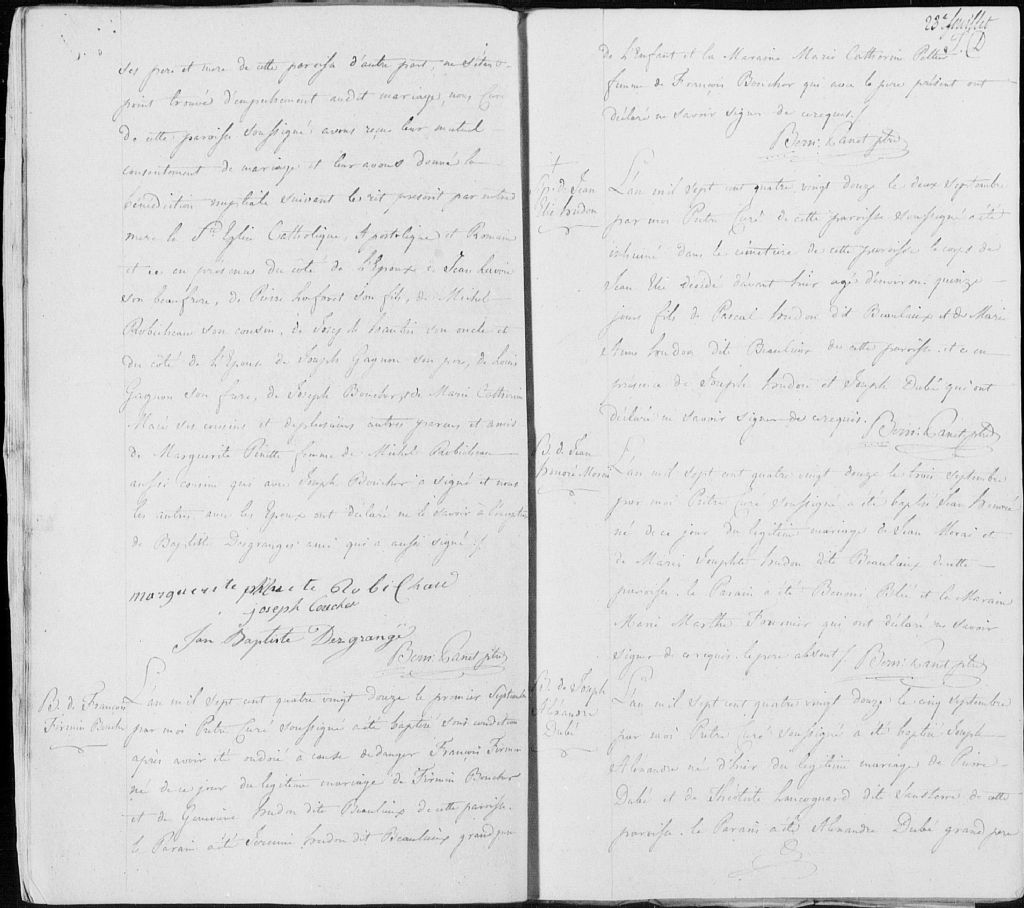 ses pere et mere de cette paroisse d'autre part, ne s'étant
point trouvé d'empechement audit mariage, nous Curé
de cette paroisse soussigné avons reçu leur mutuel
consentement de mariage et leur avons donné la
bénédiction nuptiale suivant le rit prescrit par notre
mere la Ste Eglise Catholique, Apostolique et Romaine
et ce en présence du coté de l'Epoux de Jean
son beaufrere, de Pierre son fils, de Michel
Robicheau son cousin, de Joseph son oncle et
du côté de l'Epouse de Joseph Gagnon son pere, de Louis
Gagnon son frere, de Joseph Boucher, et de Marie Catherine
ses cousins et de plusieurs autres parens et amis
de Marguerite Pinette femme de Michel Robicheau
aussi cousine qui avec Joseph Boucher a signé et nous
les autres avec les Epoux ont déclaré ne le savoir à l'exception
de Baptiste Desgranges ami qui a aussi signé ./.
marguerite Robichaud
joseph boucher
Jan Baptiste Dezgrange
Bern: Panet ptre
B. de François
Firmin Bouche
L'an mil sept cent quatre vingt douze le premier Septembre
par moi Prêtre Curé soussigné a été baptisé sous condition
après avoir été ondoié a cause de danger François Firmin
né de ce jour du legitime mariage de Firmin Boucher
et de Genevieve hudon dite Beaulieux de cette paroisse.
le Parain a été Jérémie hudon dit Beaulieux grand pere
23e Juillet
de l'Enfant et la Maraine Marie Catherine Pelletier
femme de François Boucher qui avec le pere présent ont
déclaré ne savoir signer de ce requis ./.
Bern: Panet ptre
Sp. de Jean
Elie hudon
L'an mil sept cent quatre vingt douze le deux septembre
par moi Prêtre Curé de cette paroisse soussigné a été
inhumé dans le cimetiere de cette paroisse le corps de
Jean Elie décédé d'avant hier agé d'environ quinze
jours fils de Pascal hudon dit Beaulieux et de Marie
Anne hudon dite Beaulieux de cette paroisse. et ce en
présence de Joseph hudon et Joseph Dubé qui ont
déclaré ne savoir signer de ce requis.
Bern: Panet ptre
B. de Jean
honoré Morai
L'an mil sept cent quatre vingt douze le trois septembre
par moi Prêtre Curé soussigné a été baptisé Jean honoré
né de ce jour du legitime mariage de Jean Morai et
de Marie Josephte hudon dite Beaulieux de cette
paroisse. le Parain a été Benoni Blié et la Maraine
Marie Marthe Fournier qui ont déclaré ne savoir
signer de ce requis. le pere absent ./. Bern: Panet ptre
B. de Joseph
Alexandre
Dubé
L'an mil sept cent quatre vingt douze le cinq septembre
par moi Prêtre Curé soussigné a été baptisé Joseph
Alexandre né d'hier du legitime mariage de Pierre
Dubé et de Théotiste dite Santerre de cette
paroisse. le Parain a été Alexandre Dubé grand pere